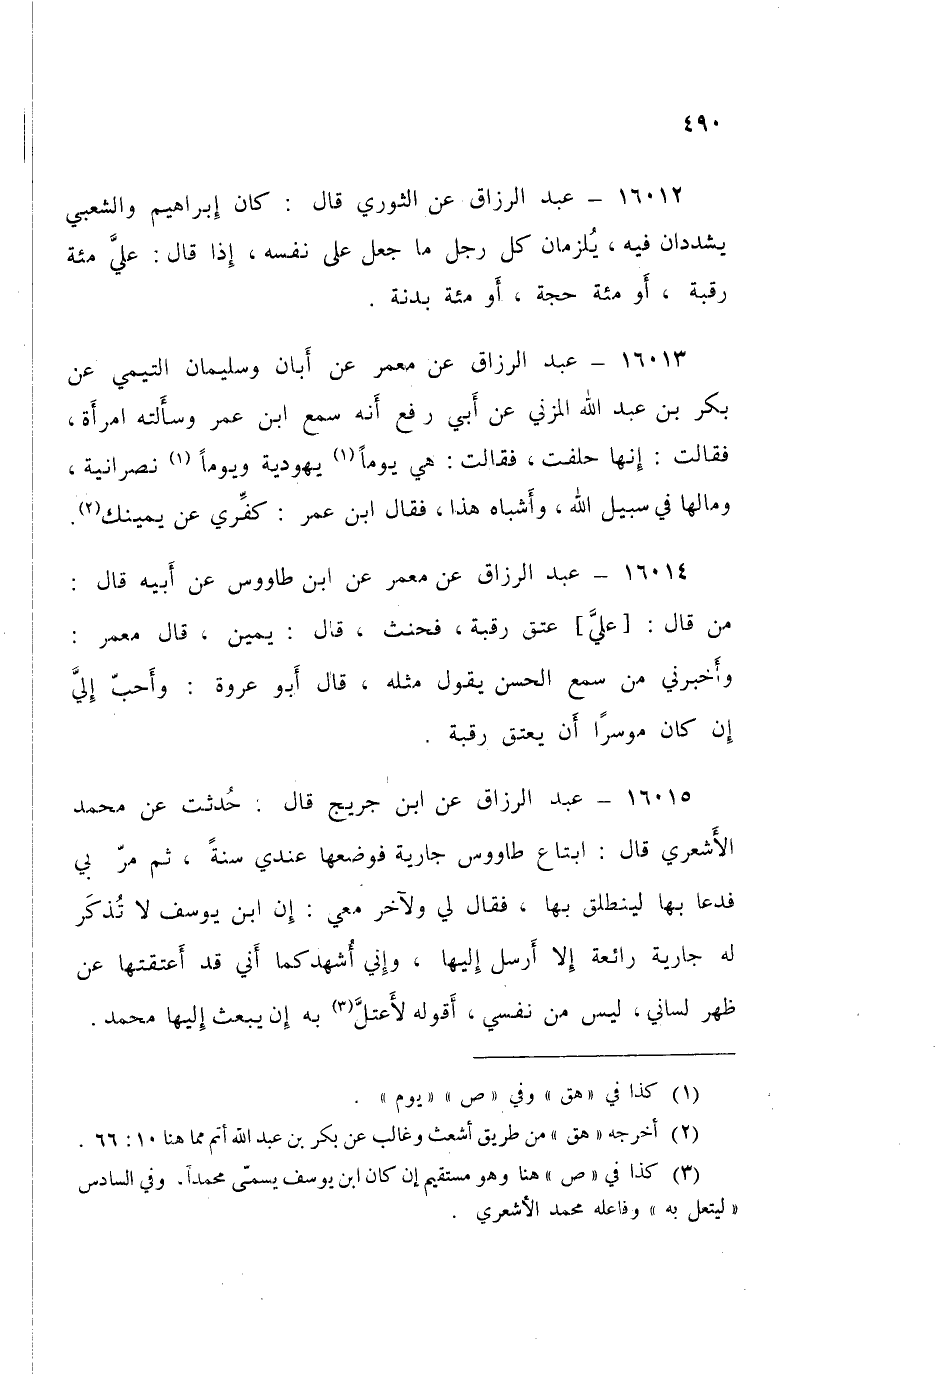 ٤٩٠
١٦٠١٢ – عبد الرزاق عن الثوري قال : كان إبراهيم والشعبي
يشددان فيه ، يُلزمان كل رجل ما جعل على نفسه ، إذا قال : عليَّ مئة
رقبة ، أو مئة حجة ، أو مئة بدنة .
١٦٠١٣ – عبد الرزاق عن معمر عن أبان وسليمان التيمي عن
بكر بن عبد الله المزني عن أبي رفع أنه سمع ابن عمر وسألته امرأة ،
فقالت : إنها حلفت ، فقالت : هي يوماً(١) يهودية ويوماً(١) نصرانية ،
ومالها في سبيل الله ، وأشباه هذا ، فقال ابن عمر : كفِّري عن يمينك(٢).
١٦٠١٤ – عبد الرزاق عن معمر عن ابن طاووس عن أبيه قال :
من قال : [عليَّ] عتق رقبة ، فحنث ، قال : يمين ، قال معمر :
وأخبرني من سمع الحسن يقول مثله ، قال أبو عروة : وأحبّ إليَّ
إن كان موسرًا أن يعتق رقبة .
١٦٠١٥ – عبد الرزاق عن ابن جريج قال : حُدثت عن محمد
الأشعري قال : ابتاع طاووس جارية فوضعها عندي سنةً ، ثم مرّ بي
فدعا بها لينطلق بها ، فقال لي ولآخر معي : إن ابن يوسف لا تُذكَر
له جارية رائعة إلا أرسل إليها ، وإني أُشهدكما أني قد أعتقتها عن
ظهر لساني ، ليس من نفسي ، أقوله لأعتلَّ(٣) به إن يبعث إليها محمد .
(١) كذا في «هق» وفي «ص» «يوم» .
(٢) أخرجه «هق» من طريق أشعث وغالب عن بكر بن عبد الله أتم مما هنا ١٠ : ٦٦ .
(٣) كذا في «ص» هنا وهو مستقيم إن كان ابن يوسف يسمّى محمداً. وفي السادس
« ليتعل به » وفاعله محمد الأشعري .